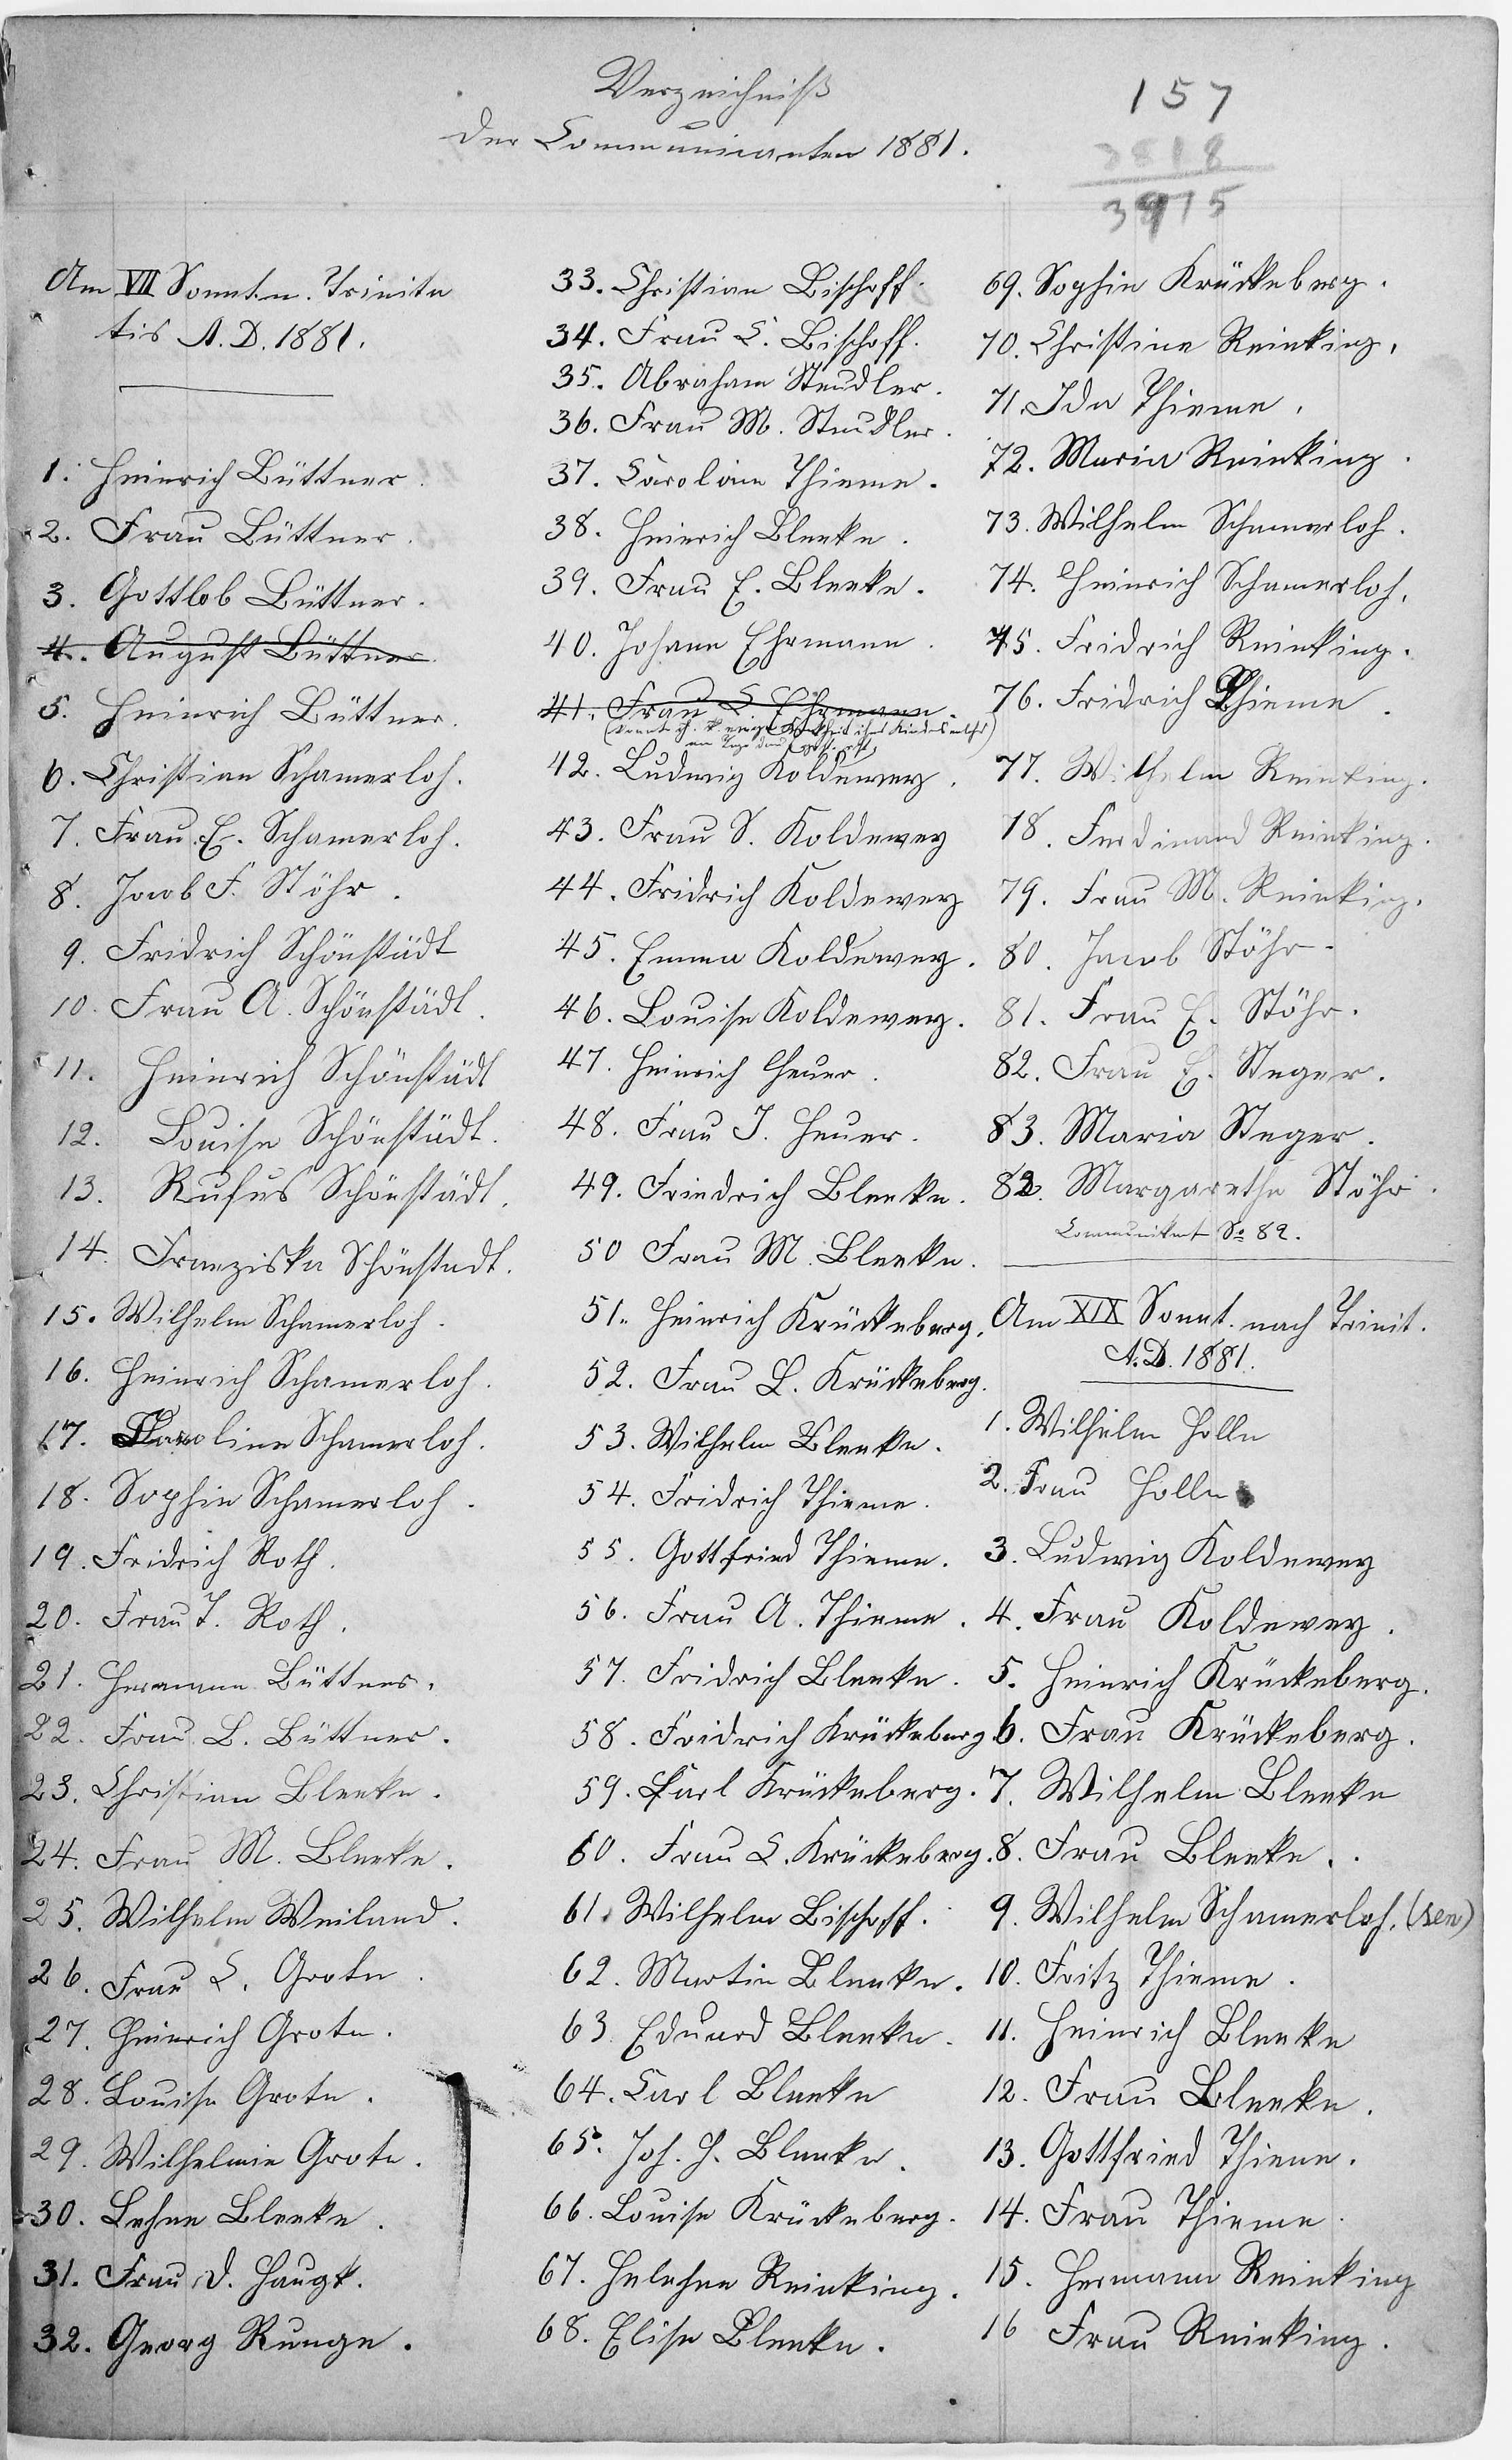 Verzeichniß
der Communicanten 1881.
157
3818
3975
Am VII Sonnt. n. Trinita
tis A. D. 1881.
1. Heinrich Büttner.
2. Frau Büttner.
3. Gottlob Büttner.
4. August Büttner.
5. Heinrich Büttner.
6. Christian Schamerloh.
7. Frau E. Schamerloh.
8. Jacob F. Stöhr.
9. Fridrich Schönstädt
10. Frau A. Schönstädt.
11. Heinrich Schönstädt
12. Louise Schönstädt.
13. Rufus Schönstädt.
14. Franziska Schönstadt.
15. Wilhelm Schamerloh.
16. Heinrich Schamerloh.
17. Caroline Schamerloh.
18. Sophie Schamerloh.
19. Fridrich Roth.
20. Frau T. Roth.
21. Hermann Büttner.
22. Frau L. Büttner.
23. Christian Bleeke.
24. Frau M. Bleeke.
25. Wilhelm Weiland.
26. Frau C. Grote.
27. Heinrich Grote.
28. Louise Grote.
29. Wilhelmie Grote.
30. Lehne Bleeke.
31. Frau D. Haugk.
32. Georg Runge.
33. Christian Bischoff.
34. Frau C. Bischoff.
35. Abraham Steudler.
36. Frau M. Steudler.
37. Caroline Thieme.
38. Heinrich Bleeke.
39. Frau E. Bleeke.
40. Johann Ehrmann.
41. Frau C Ehrmann.
(konnte Krankheit ihres Kindes
42. Ludwig Koldewey.
43. Frau S. Koldewey
44. Fridrich Koldewey
45. Emma Koldewey.
46. Louise Koldewey.
47. Heinrich Heuer.
48. Frau J. Heuer.
49. Friedrich Bleeke.
50 Frau M. Bleeke.
51. Heinrich Krückeberg.
52. Frau L. Krückeberg.
53. Wilhelm Bleeke.
54. Fridrich Thieme.
55. Gottfried Thieme.
56. Frau A. Thieme.
57. Fridrich Bleeke.
58. Fridrich Krückeberg
59. Karl Krückeberg.
60. Frau C. Krückeberg.
61. Wilhelm Bischoff.
62. Martin Bleeke.
63. Eduard Bleeke.
64. Carl Bleeke
65. Joh. H. Bleeke.
66. Louise Krückeberg.
67. Helehne Reinking.
68. Elise Bleeke.
69. Sophie Krückeberg.
70. Christine Reinking.
71. Ida Thieme.
72. Maria Reinking.
73. Wilhelm Schamerloh.
74. Heinrich Schamerloh.
75. Fridrich Reinking.
76. Fridrich Thieme.
77. Wilhelm Reinking.
78. Ferdinand Reinking.
79. Frau M. Reinking.
80. Jacob Stöhr.
81. Frau E. Stöhr.
82. Frau E. Steger.
83. Maria Steger.
82. Margarethe Stöhr.
Communikant So 82.
Am XIX Sonnt. nach Trinit.
A. D. 1881.
1. Wilhelm Holle
2. Frau Holle
3. Ludwig Koldewey
4. Frau Koldewey.
5. Heinrich Krückeberg.
6. Frau Krückeberg.
7. Wilhelm Bleeke
8. Frau Bleeke.
9. Wilhelm Schamerloh. (sen)
10. Fritz Thieme.
11. Heinrich Bleeke
12. Frau Bleeke.
13. Gottfried Thieme.
14. Frau Thieme.
15. Hermann Reinking
16 Frau Reinking.